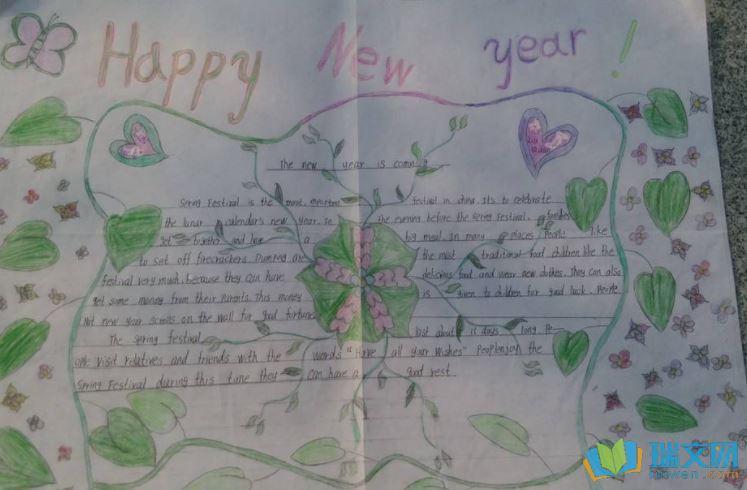 Happy New year !
The new year is coming
Spring Festival is the most important festival in china. It's to celebrate
the lunar calendar's new year. In the evening before the Spring Festival, families
get together and have a big meal. In many places people like
to set off firecrackers. Dumpling are the most traditional food. children like the
festival very much, because they can have delicious food and wear new clothes. They can also
get some money from their parents. This money is given to children for good luck. People
put new year scrolls on the wall for good fortune.
The spring festival last about 15 days long. Pe
ople visit relatives and friends with the words "Have all your wishes" People enjoy the
Spring Festival during this time they can have a good rest.
瑞文网